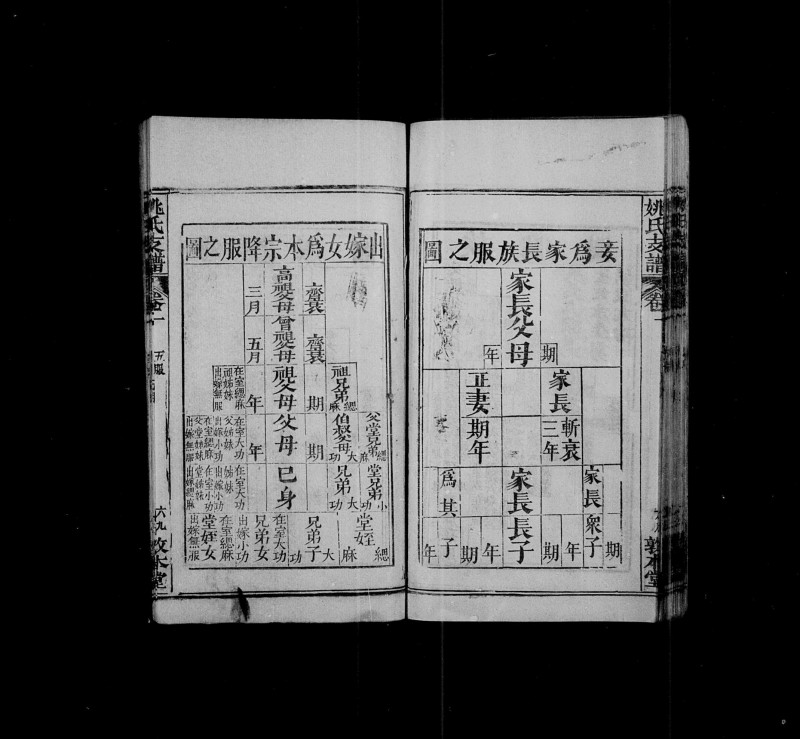 姚氏支譜
卷一
敦本堂
妾爲家長族服之圖
家長父母
期年
家長
斬衰三年
正妻
期年
家長衆子
期年
家長長子
期年
爲其子
期年
出嫁女爲本宗降服之圖
高祖父母
齊衰三月
曾祖父母
齊衰五月
祖父母
期年
父母
期年
己身
祖兄弟
緦麻
祖姊妹
在室緦麻
出嫁無服
伯叔父母
大功
父堂兄弟
緦麻
父姊妹
在室大功
出嫁小功
父堂姊妹
在室緦麻
出嫁無服
兄弟
大功
堂兄弟
小功
姊妹
在室大功
出嫁小功
堂姊妹
在室小功
出嫁緦麻
兄弟子
大功
堂姪
緦麻
兄弟女
在室大功
堂姪女
在室緦麻
出嫁無服
姚氏支譜
卷一
五服
六九
敦本堂